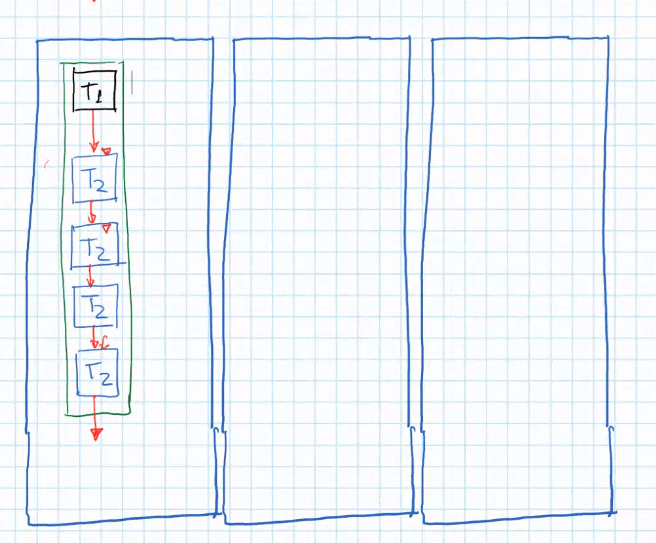 T1
T2
T2
T2
T2